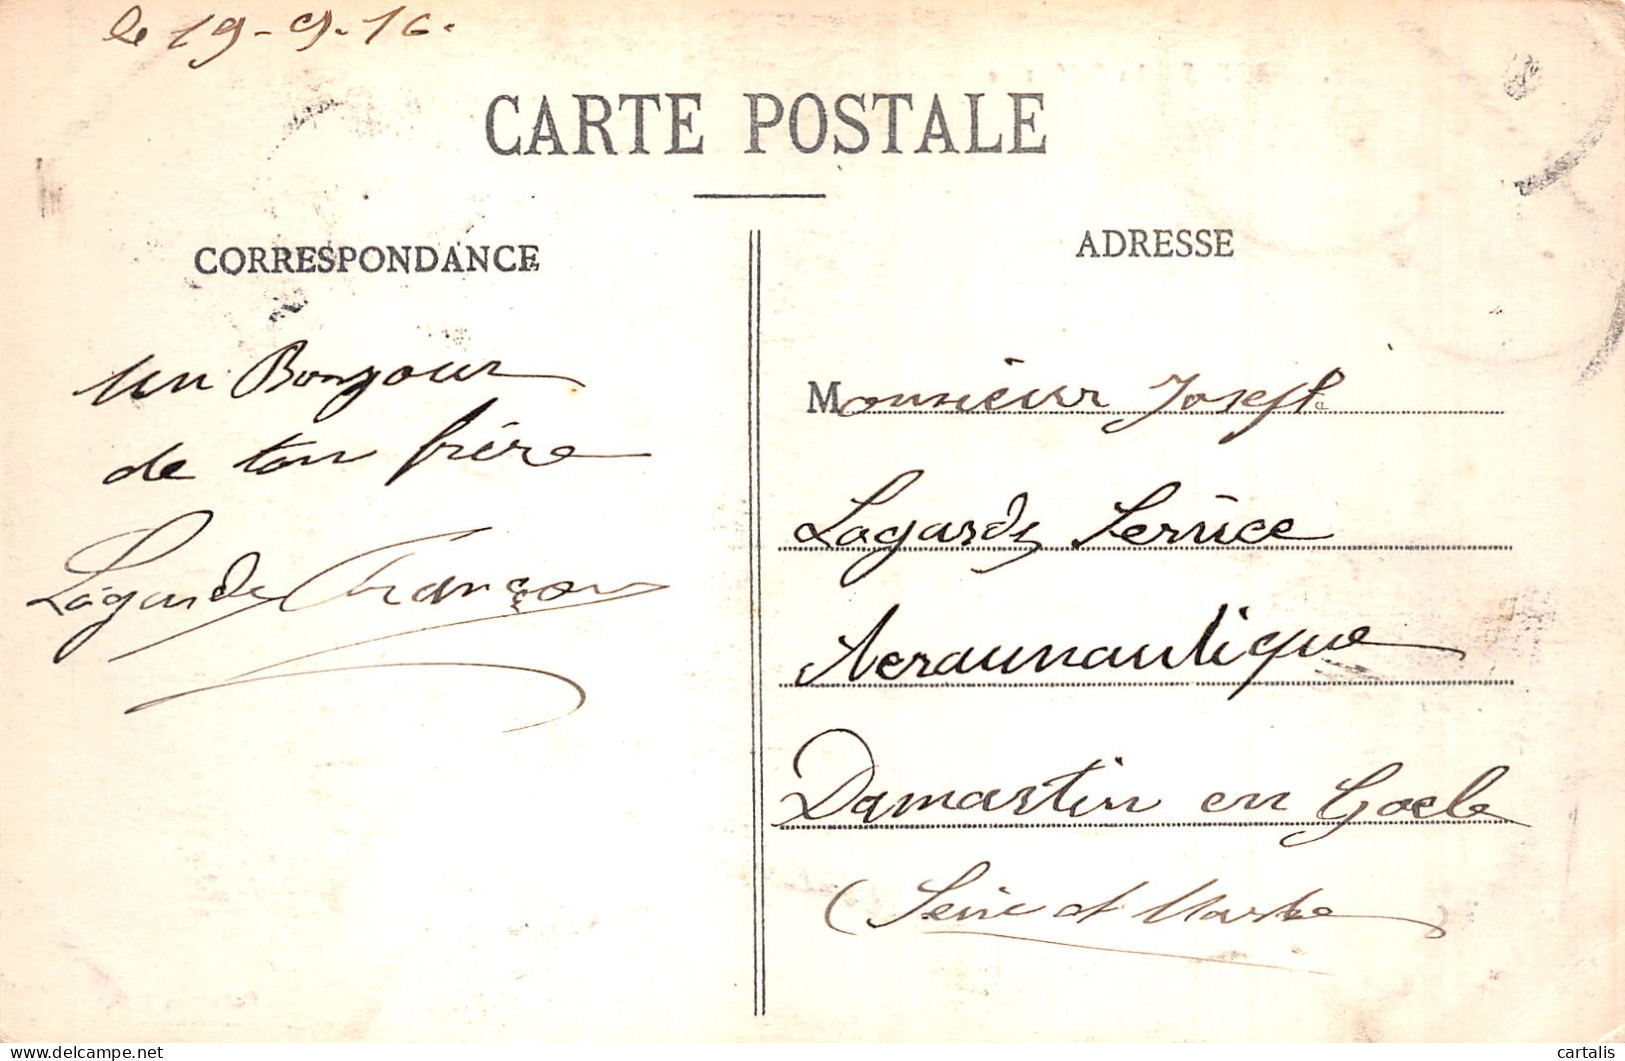 le 19-9-16.
CARTE POSTALE
CORRESPONDANCE
un Bonjour
de ton frère
Lagarde François
ADRESSE
Monsieur Joseph
Lagarde Service
Aeraunautique
Damartin en Goele
(Seine et Marne)
cartalis